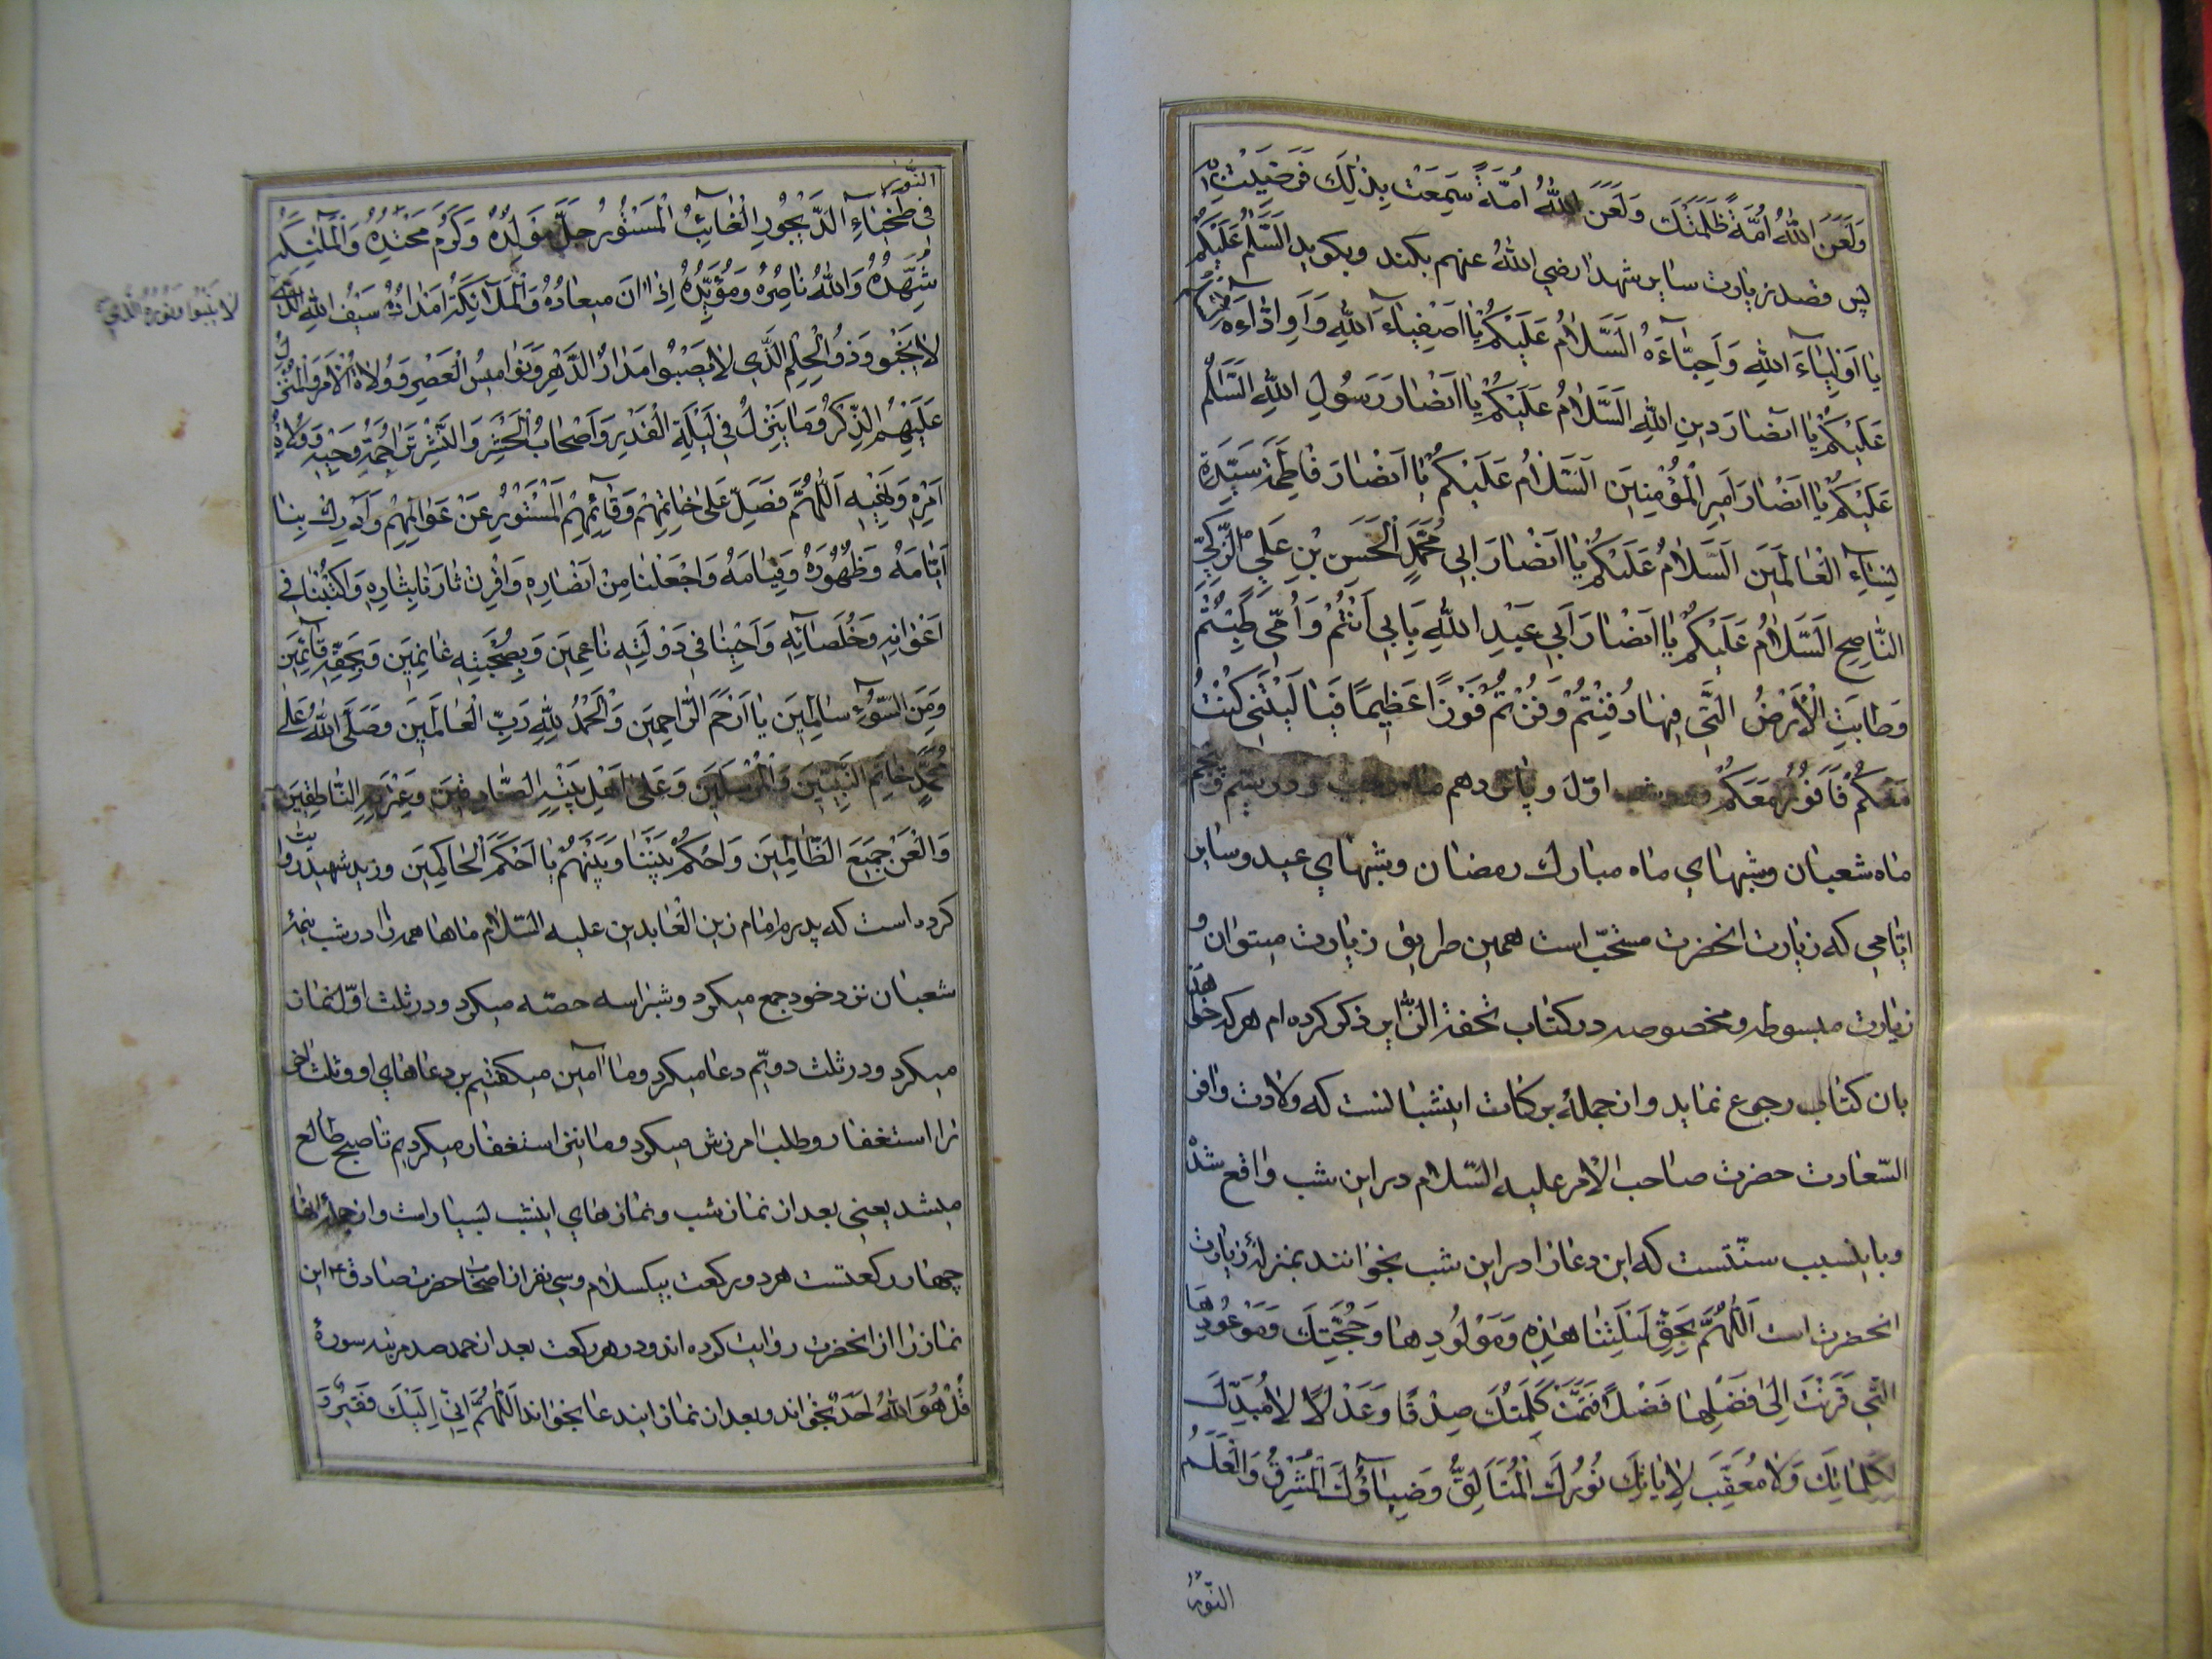 وَلَعَنَ اللهُ اُمَّةً ظَلَمَتْكَ وَلَعَنَ اللهُ اُمَّةً سَمِعَتْ بِذٰلِكَ فَرَضِيَتْ بِهِ
پس قصد زیارت سایر شهدا رضی الله عنهم بکند و بکوید اَلسَّلٰمُ عَلَیْکُمْ
یٰا اَوْلِیٰٓاءَ اللهِ وَاَحِبّٰآءَهُ اَلسَّلٰامُ عَلَیْکُمْ یٰا اَصْفِیٰٓاءَ اللهِ وَاَوِدّٰاءَهُ اَلسَّلٰمُ
عَلَیْکُمْ یٰا اَنْصٰارَ دینِ اللهِ اَلسَّلٰامُ عَلَیْکُمْ یٰا اَنْصٰارَ رَسُولِ اللهِ اَلسَّلٰمُ
عَلَیْکُمْ یٰا اَنْصٰارَ اَمیرِ الْمُؤْمِنینَ اَلسَّلٰامُ عَلَیْکُمْ یٰا اَنْصٰارَ فٰاطِمَةَ سَیِّدَةِ
نِسٰآءِ الْعٰالَمینَ اَلسَّلٰامُ عَلَیْکُمْ یٰا اَنْصٰارَ اَبی مُحَمَّدٍ الْحَسَنِ بْنِ عَلِیٍّ الزَّکِیِّ
النّٰاصِحِ اَلسَّلٰامُ عَلَیْکُمْ یٰا اَنْصٰارَ اَبی عَبْدِ اللهِ بِاَبی اَنْتُمْ وَاُمّی طِبْتُمْ
وَطٰابَتِ الْاَرْضُ الَّتی فیهٰا دُفِنْتُمْ وَفُزْتُمْ فَوْزًا عَظیمًا فَیٰا لَیْتَنی کُنْتُ
مَعَکُمْ فَاَفُوزَ مَعَکُمْ و در شب اوّل و پانزدهم ماه رجب و در سیّم و پنجم
ماه شعبان و شبهای ماه مبارک رمضان و شبهای عید و سایر
ایّامی که زیارت انحضرت مستحبّ است همین طریق زیارت میتوان و
زیارت مبسوطه و مخصوصه در کتاب تحفة الزّایر ذکر کرده ام هر که خواهد
بان کتاب رجوع نماید و از جملهٔ برکات اینشب انست که ولادت وافر
السّعادت حضرت صاحب الامر علیه السّلام در این شب واقع شده
و باینسبب سنّتست که این دعا را در این شب بخوانند بمنزلهٔ زیارت
انحضرت است اَللّٰهُمَّ بِحَقِّ لَیْلَتِنٰا هٰذِهِ وَمَوْلُودِهٰا وَحُجَّتِکَ وَمَوْعُودِهَا
الَّتی قَرَنْتَ اِلیٰ فَضْلِهٰا فَضْلًا فَتَمَّتْ کَلِمَتُکَ صِدْقًا وَعَدْلًا لٰا مُبَدِّلَ
لِکَلِمٰاتِکَ وَلٰا مُعَقِّبَ لِاٰیٰاتِکَ نُورُکَ الْمُتَاَلِّقُ وَضِیٰآؤُکَ الْمُشْرِقُ وَالْعَلَمُ
النُّورُ
النُّورُ
فی طَخْیٰاءِ الدَّیْجُورِ الْغٰآئِبُ الْمَسْتُورُ جَلَّ مَوْلِدُهُ وَکَرُمَ مَحْتِدُهُ وَالْمَلٰئِکَةُ
شُهَّدُهُ وَاللهُ نٰاصِرُهُ وَمُؤَیِّدُهُ اِذٰا اٰنَ میعٰادُهُ وَالْمَلٰٓائِکَةُ اَمْدٰادُهُ سَیْفُ اللهِ الَّذی
لٰا یَنْبُو وَنُورُهُ الَّذی
لٰا یَخْبُو وَذُو الْحِلْمِ الَّذی لٰا یَصْبُوا مَدٰارُ الدَّهْرِ وَنَوٰامیسُ الْعَصْرِ وَوُلٰاةُ الْاَمْرِ وَالْمُنَزَّلُ
عَلَیْهِمُ الذِّکْرُ وَمٰا یَنْزِلُ فی لَیْلَةِ الْقَدْرِ وَاَصْحٰابُ الْحَشْرِ وَالنَّشْرِ تَرٰاجِمَةُ وَحْیِهِ وَوُلٰاةُ
اَمْرِهِ وَنَهْیِهِ اَللّٰهُمَّ فَصَلِّ عَلیٰ خٰاتِمِهِمْ وَقٰآئِمِهِمُ الْمَسْتُورِ عَنْ عَوٰالِمِهِمْ وَاَدْرِکْ بِنٰا
اَیّٰامَهُ وَظُهُورَهُ وَقِیٰامَهُ وَاجْعَلْنٰا مِنْ اَنْصٰارِهِ وَاقْرِنْ ثٰارَنٰا بِثٰارِهِ وَاکْتُبْنٰا فی
اَعْوٰانِهِ وَخُلَصٰآئِهِ وَاَحْیِنٰا فی دَوْلَتِهِ نٰاعِمینَ وَبِصُحْبَتِهِ غٰانِمینَ وَبِحَقِّهِ قٰآئِمینَ
وَمِنَ السُّوٓءِ سٰالِمینَ یٰا اَرْحَمَ الرّٰاحِمینَ وَالْحَمْدُ لِلّٰهِ رَبِّ الْعٰالَمینَ وَصَلَّی اللهُ عَلیٰ
مُحَمَّدٍ خٰاتَمِ النَّبِیّینَ وَالْمُرْسَلینَ وَعَلیٰ اَهْلِ بَیْتِهِ الصّٰادِقینَ وَعِتْرَتِهِ النّٰاطِقینَ
وَالْعَنْ جَمیعَ الظّٰالِمینَ وَاحْکُمْ بَیْنَنٰا وَبَیْنَهُمْ یٰا اَحْکَمَ الْحٰاکِمینَ و زید شهید روایت
کرده است که پدرم امام زین العابدین علیه السّلام ماها همه را در شب نیمهٔ
شعبان نزد خود جمع میکرد و شبرا سه حصّه میکرد و در ثلث اوّل نماز
میکرد و در ثلث دویّم دعا میکرد و ما آمین میکفتیم بر دعاهای او و ثلث اخر
را استغفار و طلب امرزش میکرد و ما نیز استغفار میکردیم تا صبح طالع
میشد یعنی بعد از نماز شب و نمازهای اینشب بسیار است و از جمله انها
چهار رکعتست هر دو رکعت بیکسلام و سی نفر از اصحاب حضرت صادق ع این
نماز را از انحضرت روایت کرده اند و در هر رکعت بعد از حمد صد مرتبه سورهٔ
قُلْ هُوَ اللهُ اَحَدٌ بخواند و بعد از نماز ایندعا بخواند اَللّٰهُمَّ اِنّی اِلَیْکَ فَقیرٌ وَ